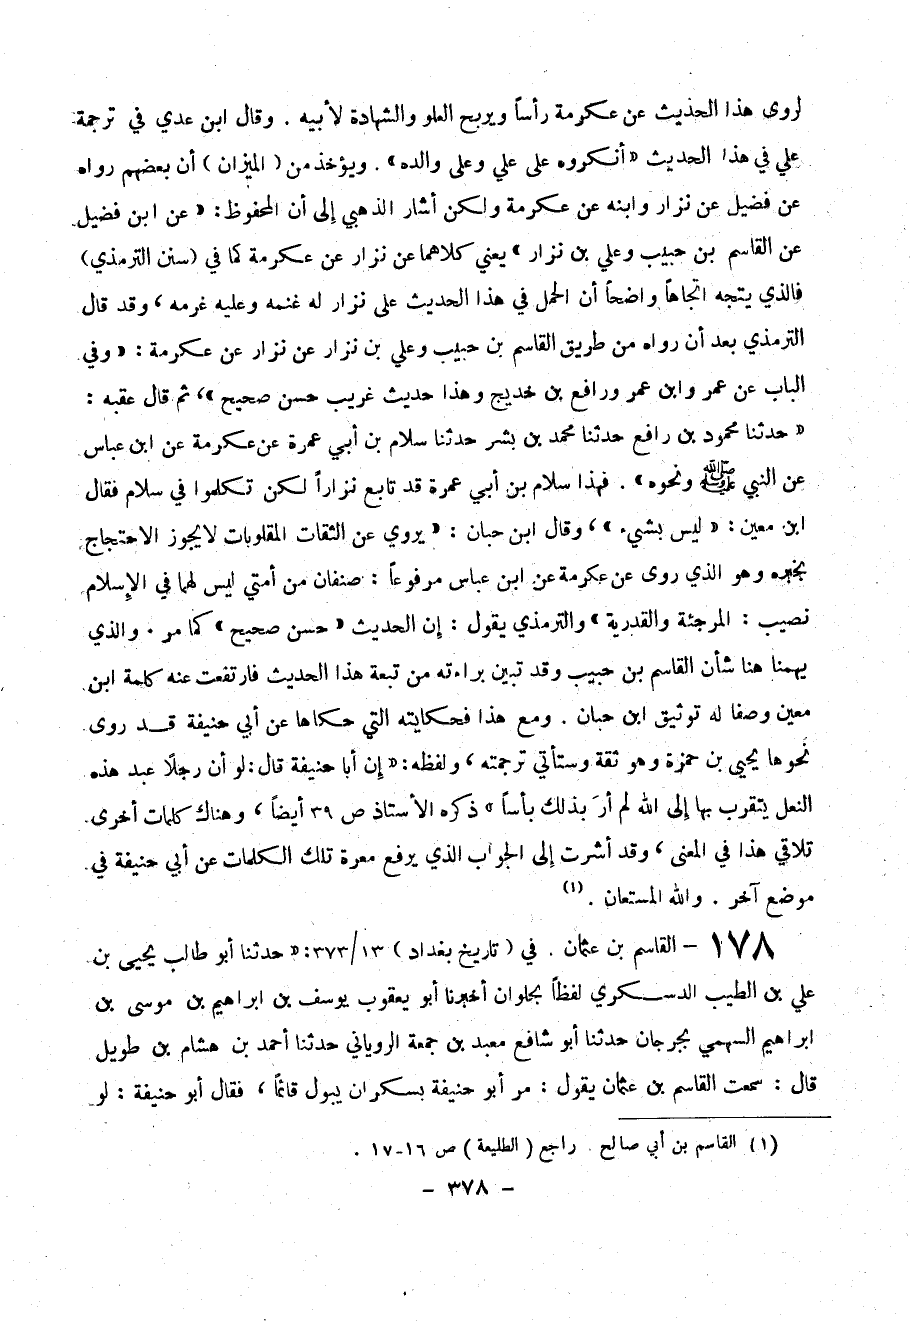 لروى هذا الحديث عن عكرمة رأساً ويربح العلو والشهادة لأبيه . وقال ابن عدي في ترجمة
علي في هذا الحديث « أنكروه على علي وعلى والده » . ويؤخذ من ( الميزان ) أن بعضهم رواه
عن فضيل عن نزار وابنه عن عكرمة ولكن أشار الذهبي إلى أن المحفوظ : « عن ابن فضيل
عن القاسم بن حبيب وعلي بن نزار » يعني كلاهما عن نزار عن عكرمة كما في (سنن الترمذي)
فالذي يتجه اتجاهاً واضحاً أن الحمل في هذا الحديث على نزار له غنمه وعليه غرمه ، وقد قال
الترمذي بعد أن رواه من طريق القاسم بن حبيب وعلي بن نزار عن نزار عن عكرمة : « وفي
الباب عن عمر وابن عمر ورافع بن خديج وهذا حديث غريب حسن صحيح » ، ثم قال عقبه :
« حدثنا محمود بن رافع حدثنا محمد بن بشر حدثنا سلام بن أبي عمرة عن عكرمة عن ابن عباس
عن النبي ﷺ ونحوه » . فهذا سلام بن أبي عمرة قد تابع نزاراً لكن تكلموا في سلام فقال
ابن معين : « ليس بشيء » ، وقال ابن حبان : « يروي عن الثقات المقلوبات لايجوز الاحتجاج
بخبره وهو الذي روى عن عكرمة عن ابن عباس مرفوعاً : صنفان من أمتي ليس لهما في الإسلام
نصيب : المرجئة والقدرية » والترمذي يقول : إن الحديث « حسن صحيح » كما مر . والذي
يهمنا هنا شأن القاسم بن حبيب وقد تبين براءته من تبعة هذا الحديث فارتفعت عنه كلمة ابن
معين وصفا له توثيق ابن حبان . ومع هذا فحكايته التي حكاها عن أبي حنيفة قد روى
نحوها يحيى بن حمزة وهو ثقة وستأتي ترجمته ، ولفظه : « إن أبا حنيفة قال : لو أن رجلاً عبد هذه
النعل يتقرب بها إلى الله لم أرَ بذلك بأساً » ذكره الأستاذ ص ٣٩ أيضاً ، وهناك كلمات أخرى
تلاقي هذا في المعنى ، وقد أشرت إلى الجواب الذي يرفع معرة تلك الكلمات عن أبي حنيفة في
موضع آخر . والله المستعان . (١)
١٧٨ – القاسم بن عثمان . في ( تاريخ بغداد ) ٣٧٣/١٣ : « حدثنا أبو طالب يحيى بن
علي بن الطيب الدسكري لفظاً بحلوان أخبرنا أبو يعقوب يوسف بن ابراهيم بن موسى بن
ابراهيم السهمي بجرجان حدثنا أبو شافع معبد بن جمعة الروياني حدثنا أحمد بن هشام بن طويل
قال : سمعت القاسم بن عثمان يقول : مر أبو حنيفة بسكران يبول قائماً ، فقال أبو حنيفة : لو
(١) القاسم بن أبي صالح . راجع ( الطليعة ) ص ١٦-١٧ .
– ٣٧٨ –